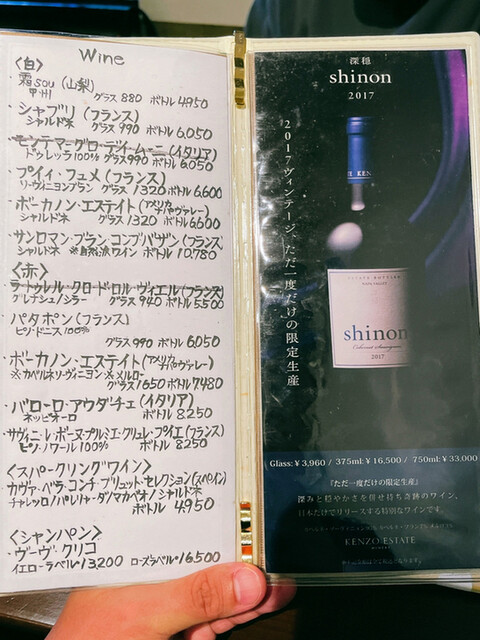 Wine
〈白〉
霜SOU(山梨)
甲州 グラス 880 ボトル 4950
・シャブリ(フランス)
シャルドネ グラス 990 ボトル 6,050
・モンテマーグロ・デイ・ムーニ(イタリア)
ドゥレッラ100% グラス990 ボトル6050
・プイィ・フュメ(フランス)
ソーヴィニヨンブラン グラス 1320 ボトル 6,600
・ボーカノン・エステイト(アメリカ ナパヴァレー)
シャルドネ グラス 1320 ボトル 6,600
・サンロマン・ブラン・コンブバザン(フランス)
シャルドネ ※自然派ワイン ボトル 10,780
〈赤〉
ラトゥレル・クロード・ロル・ヴィエル(フランス)
グルナシュ/シラー グラス 940 ボトル 5500
・パタポン(フランス)
ピノ・ドニス 100%
グラス 990 ボトル 6,050
・ボーカノン・エステイト(アメリカ ナパヴァレー)
※カベルネソーヴィニヨン※メルロー
グラス1650 ボトル7480
・バローロ・アウダチェ(イタリア)
ネッビオーロ ボトル 8250
・サヴィニ・レ・ボーヌ・プルミエ・クリュ・レ・プイエ(フランス)
ピノ・ノワール 100% ボトル 8250
〈スパークリングワイン〉
カヴァ・ベラ・コンチ ブリュット・セレクション(スペイン)
チャレッロ/パレリャーダ/マカベオ/シャルドネ
ボトル 4950
〈シャンパン〉
・ヴーヴ・クリコ
イエローラベル・13,200 ローズラベル・16,500
深穏
shinon
2017
2017ヴィンテージ、ただ一度だけの限定生産
ESTATE BOTTLED
NAPA VALLEY
shinon
Cabernet Sauvignon
2017
Glass: ¥ 3,960 / 375ml: ¥ 16,500 / 750ml: ¥ 33,000
『ただ一度だけの限定生産』
深みと穏やかさを併せ持ち奇跡のワイン、
日本だけでリリースする特別なワインです。
KENZO ESTATE
WINERY